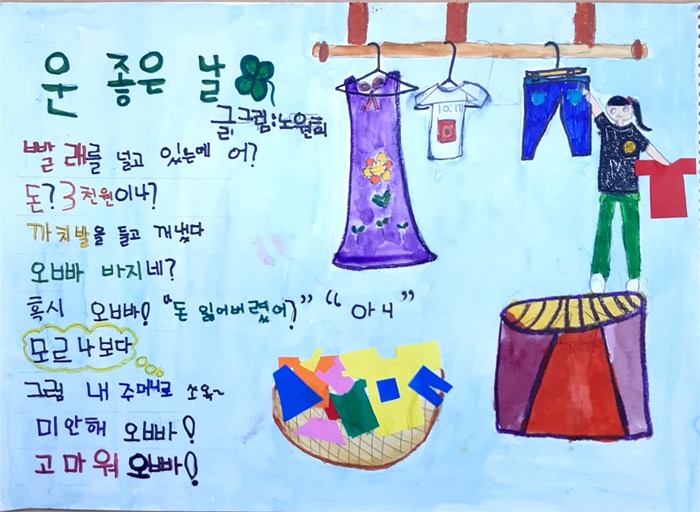 운 좋은 날
글, 그림:노원희
빨래를 널고 있는데 어?
돈? 3천원이나?
까치발을 들고 꺼냈다
오빠 바지네?
혹시 오빠! "돈 잃어버렸어?" "아니"
모르나보다
그럼 내 주머니로 쏘옥~
미안해 오빠!
고마워 오빠!